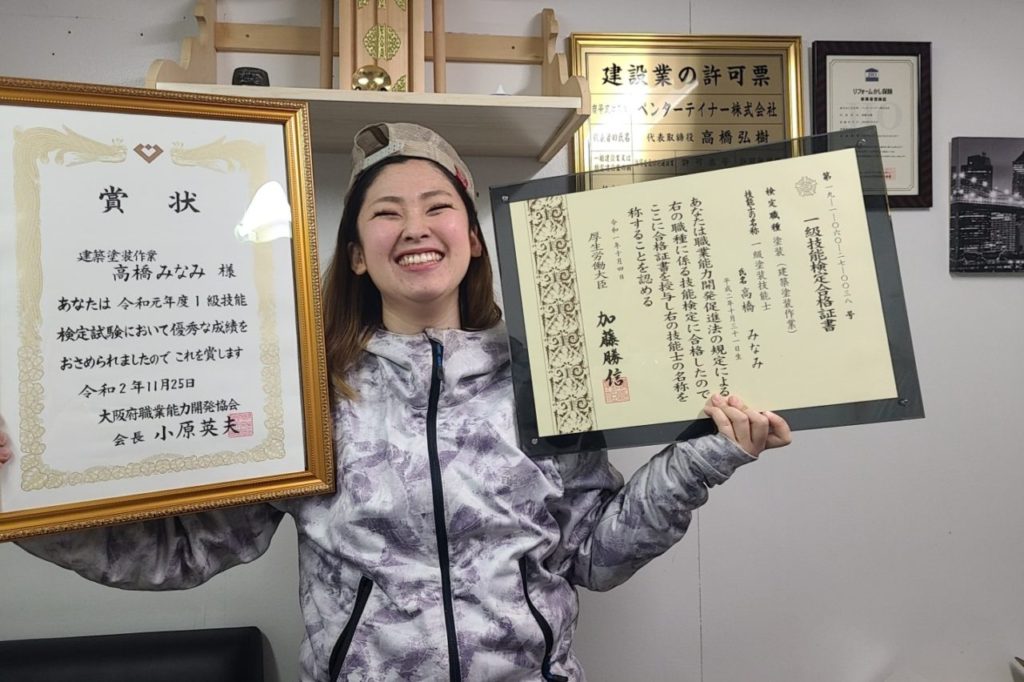 賞状
建築塗装作業
高橋みなみ 様
あなたは 令和元年度1級技能
検定試験において優秀な成績を
おさめられましたので これを賞します
令和2年11月25日
大阪府職業能力開発協会
会長 小原英夫
建設業の許可票
ペンターテイナー株式会社
代表者の氏名 代表取締役 高橋弘樹
一般建設業又は
リフォームかし保険
第一九-二-一〇六〇-二七-〇〇三八号
一級技能検定合格証書
検定職種 塗装(建築塗装作業)
技能士の名称 一級塗装技能士
氏名 高橋 みなみ
平成二年十月三十一日生
あなたは職業能力開発促進法の規定による
右の職種に係る技能検定に合格したので
ここに合格証書を授与し右の技能士の名称を
称することを認める
令和一年十月四日
厚生労働大臣 加藤勝信